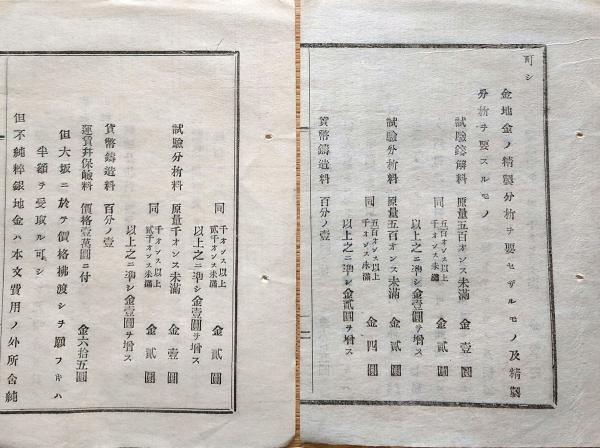 可シ
金地金ノ精製分析ヲ要セザルモノ及精製
分析ヲ要スルモノ
試驗鎔解料 原量五百オンス未滿 金壹圓
同 五百オンス以上千オンス未滿 金貳圓
以上之ニ準シ金壹圓ヲ增ス
試驗分析料 原量五百オンス未滿 金貳圓
同 五百オンス以上千オンス未滿 金四圓
以上之ニ準シ金貳圓ヲ增ス
貨幣鑄造料 百分ノ壹
試驗分析料 原量千オンス未滿 金壹圓
同 千オンス以上貳千オンス未滿 金貳圓
以上之ニ準シ金壹圓ヲ增ス
貨幣鑄造料 百分ノ壹
運賃幷保險料 價格壹萬圓ニ付 金六拾五圓
但大坂ニ於テ價格拂渡シヲ願フ片ハ
半額ヲ受取ル可シ
但不純粹銀地金ハ本文費用ノ外所含純